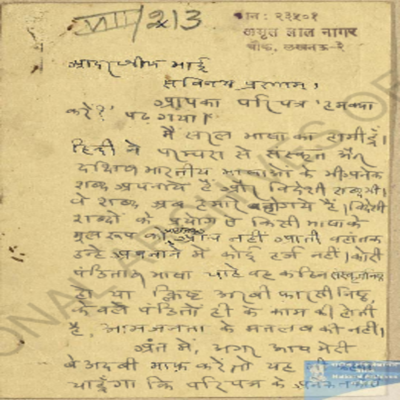 VIII/213
फोन : २३५०१
अमृत लाल नागर
चौक, लखनऊ-३
आदरणीय भाई
सविनय प्रणाम,
आपका परिपत्र 'हम क्या
करें?' पढ़ गया।
मैं सरल भाषा का हामी हूँ।
हिन्दी ने परम्परा से संस्कृत और
दक्षिण भारतीय भाषाओं के भी अनेक
शब्द अपनाये हैं और विदेशी शब्द भी।
वे शब्द अब हमारे हो गये हैं। विदेशी
शब्दों के प्रयोग से किसी भाषा के
मूल रूप को आंच नहीं आती वहां तक
उन्हें अपनाने में कोई हर्ज नहीं। कोरी
पंडिताऊ भाषा चाहे वह कठिन
हो या क्लिष्ट अरबी फारसी निष्ठ,
केवल पंडितों ही के काम की होती
है, आम जनता के मतलब की नहीं।
अंत में, अगर आप मेरी
बेअदबी माफ़ करें तो यह भी
चाहूँगा कि परिपत्र के